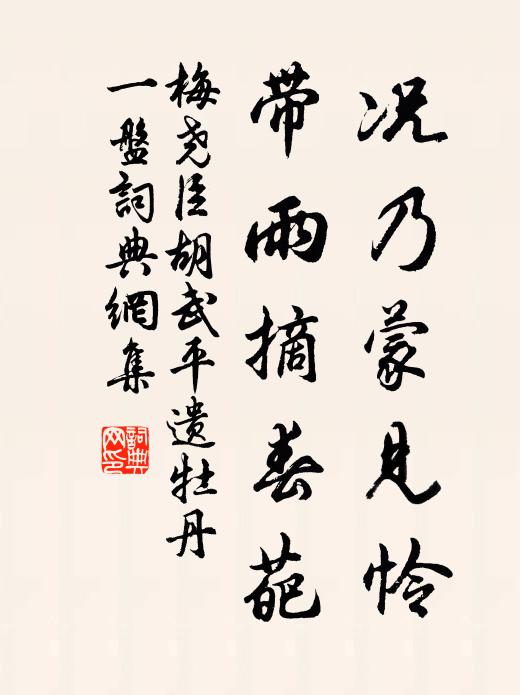 况乃蒙见怜
带雨摘春葩
梅尧臣胡武平遗牡丹
一盤詞典網集
詞典
网印